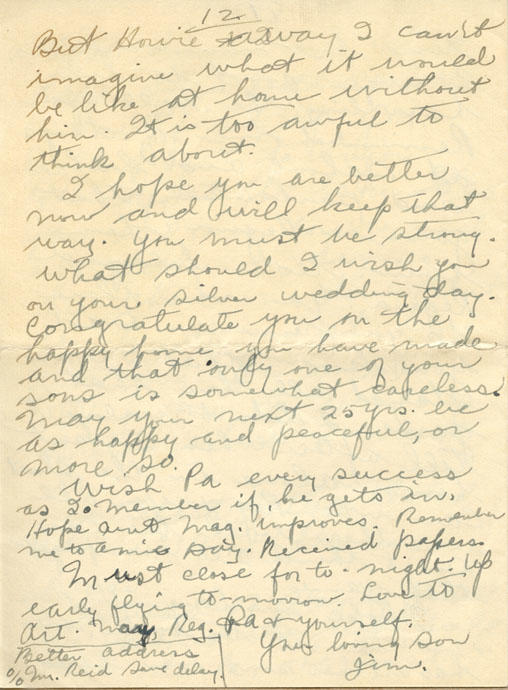 12.
But Howie away I can't
imagine what it would
be like at home without
him. It is too awful to
think about.
I hope you are better
now and will keep that
way. You must be strong.
What should I wish you
on your silver wedding day.
Congratulate you on the
happy home you have made
and that only one of your
sons is somewhat careless.
May your next 25 yrs. be
as happy and peaceful, or
more so.
Wish Pa every success
as member if he gets in.
Hope aunt Mag. improves. Remember
me to Day. Received papers.
Must close for to-night. Up
early flying to-morrow. Love to
Art. May, Reg. Pa & yourself.
Your loving son
Jim.
Better address
c/o Mr. Reid save delay.